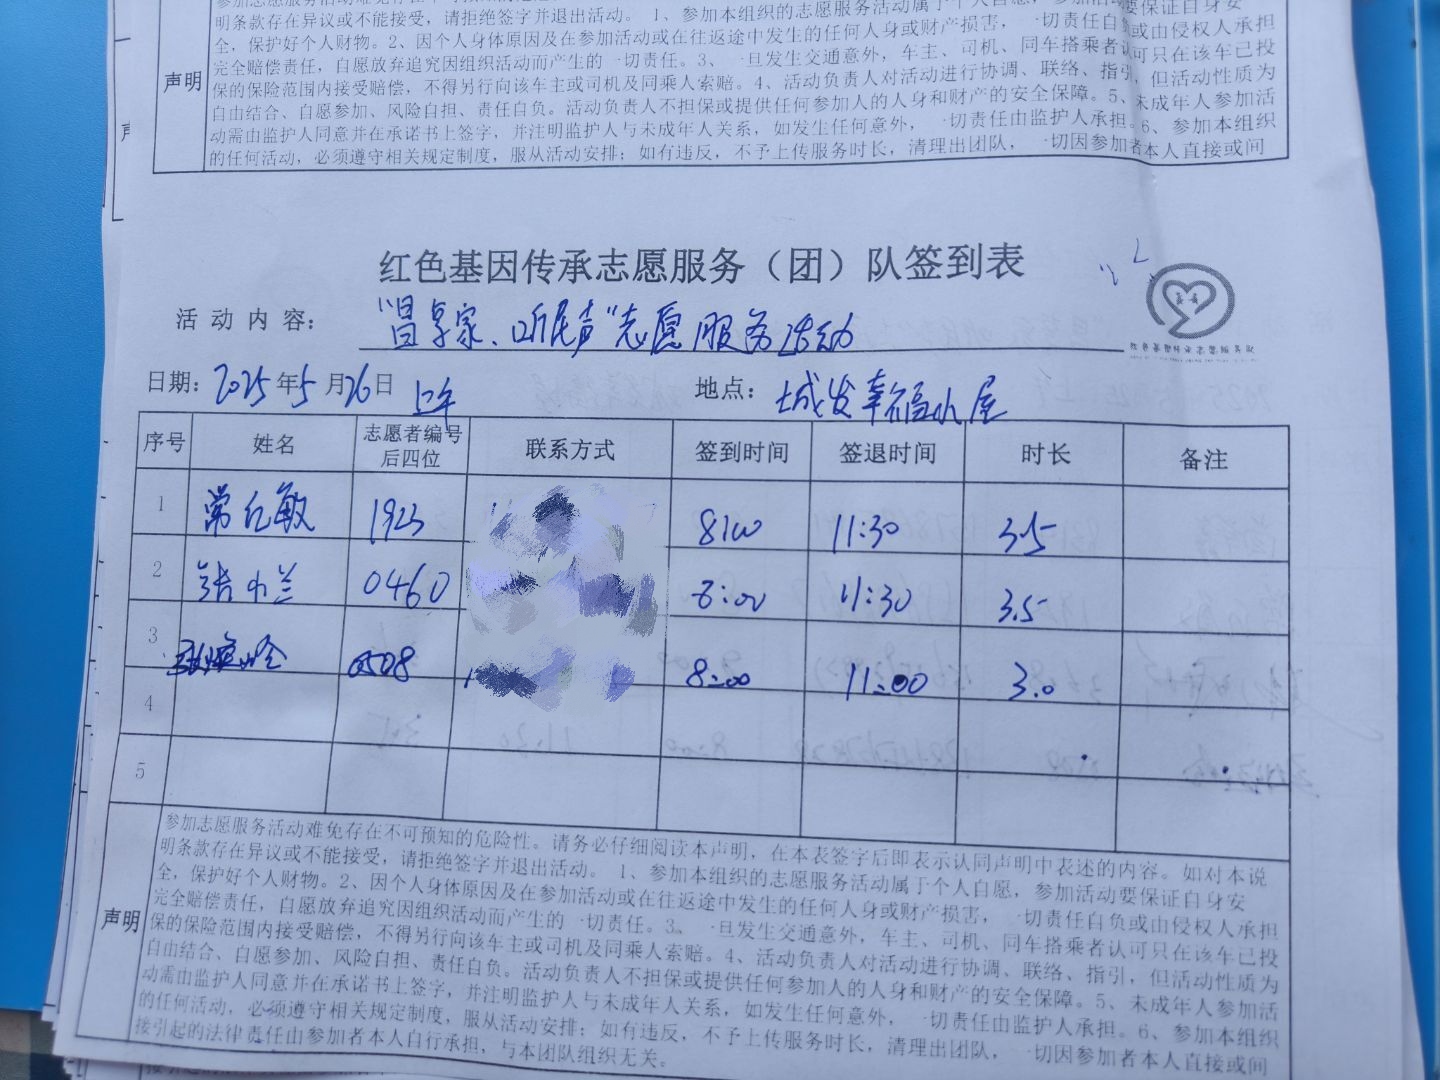 明条款存在异议或不能接受，请拒绝签字并退出活动。 1、参加本组织的志愿服务活动属于个人自愿，参加活动要保证自身安
全，保护好个人财物。2、因个人身体原因及在参加活动或在往返途中发生的任何人身或财产损害，一切责任自负或由侵权人承担
完全赔偿责任，自愿放弃追究因组织活动而产生的一切责任。3、一旦发生交通意外，车主、司机、同车搭乘者认可只在该车已投
保的保险范围内接受赔偿，不得另行向该车主或司机及同乘人索赔。4、活动负责人对活动进行协调、联络、指引，但活动性质为
自由结合、自愿参加、风险自担、责任自负。活动负责人不担保或提供任何参加人的人身和财产的安全保障。5、未成年人参加活
动需由监护人同意并在承诺书上签字，并注明监护人与未成年人关系，如发生任何意外，一切责任由监护人承担。6、参加本组织
的任何活动，必须遵守相关规定制度，服从活动安排；如有违反，不予上传服务时长，清理出团队，一切因参加者本人直接或间
声明
红色基因传承志愿服务（团）队签到表
活动内容： “昌享家、听民声”志愿服务活动
日期：2025年5月26日 上午 地点：城发幸福小屋
序号 姓名 志愿者编号后四位 联系方式 签到时间 签退时间 时长 备注
1 常红敏 1923 8:00 11:30 3.5
2 张小兰 0460 8:00 11:30 3.5
3 张焕玲 0508 8:00 11:00 3.0
4
5
声明
参加志愿服务活动难免存在不可预知的危险性。请务必仔细阅读本声明，在本表签字后即表示认同声明中表述的内容。如对本说
明条款存在异议或不能接受，请拒绝签字并退出活动。 1、参加本组织的志愿服务活动属于个人自愿，参加活动要保证自身安
全，保护好个人财物。2、因个人身体原因及在参加活动或在往返途中发生的任何人身或财产损害，一切责任自负或由侵权人承担
完全赔偿责任，自愿放弃追究因组织活动而产生的一切责任。3、一旦发生交通意外，车主、司机、同车搭乘者认可只在该车已投
保的保险范围内接受赔偿，不得另行向该车主或司机及同乘人索赔。4、活动负责人对活动进行协调、联络、指引，但活动性质为
自由结合、自愿参加、风险自担、责任自负。活动负责人不担保或提供任何参加人的人身和财产的安全保障。5、未成年人参加活
动需由监护人同意并在承诺书上签字，并注明监护人与未成年人关系，如发生任何意外，一切责任由监护人承担。6、参加本组织
的任何活动，必须遵守相关规定制度，服从活动安排；如有违反，不予上传服务时长，清理出团队，一切因参加者本人直接或间
接引起的法律责任由参加者本人自行承担，与本团队组织无关。